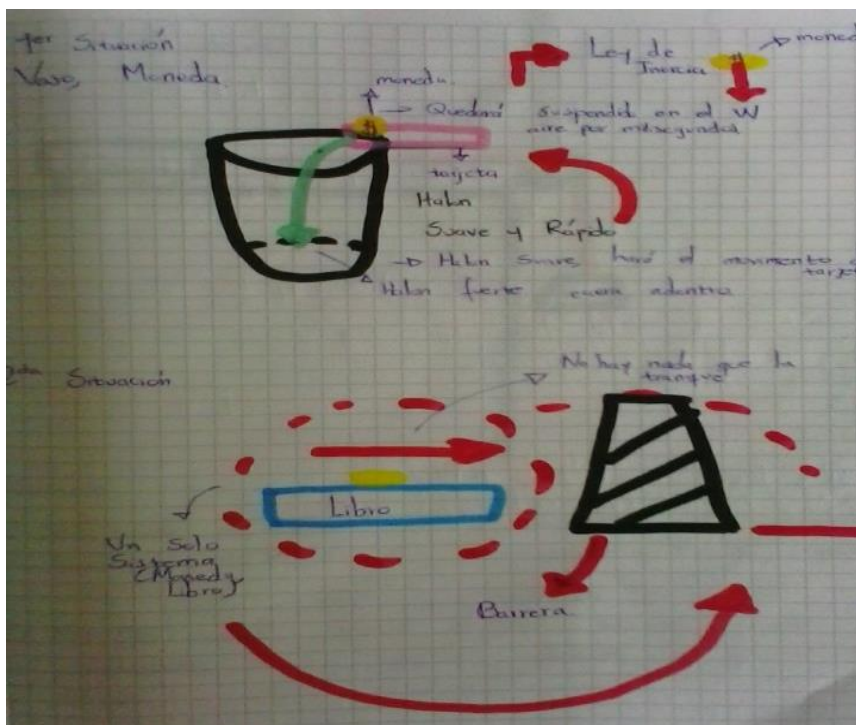 1er Situación
Vaso, Moneda.
moneda
Quedará suspendid en el
aire por milisegundos
tarjeta
Halon
Suave y Rápido
Halon suave, hará el movimiento
tarjet
Halon fuerte caera adentro
Ley de
Inercia
moned
W
2da Situación
No hay nada que la
tranque
Libro
Un Solo
Sistema
(Moneda y
Libro)
Barrera